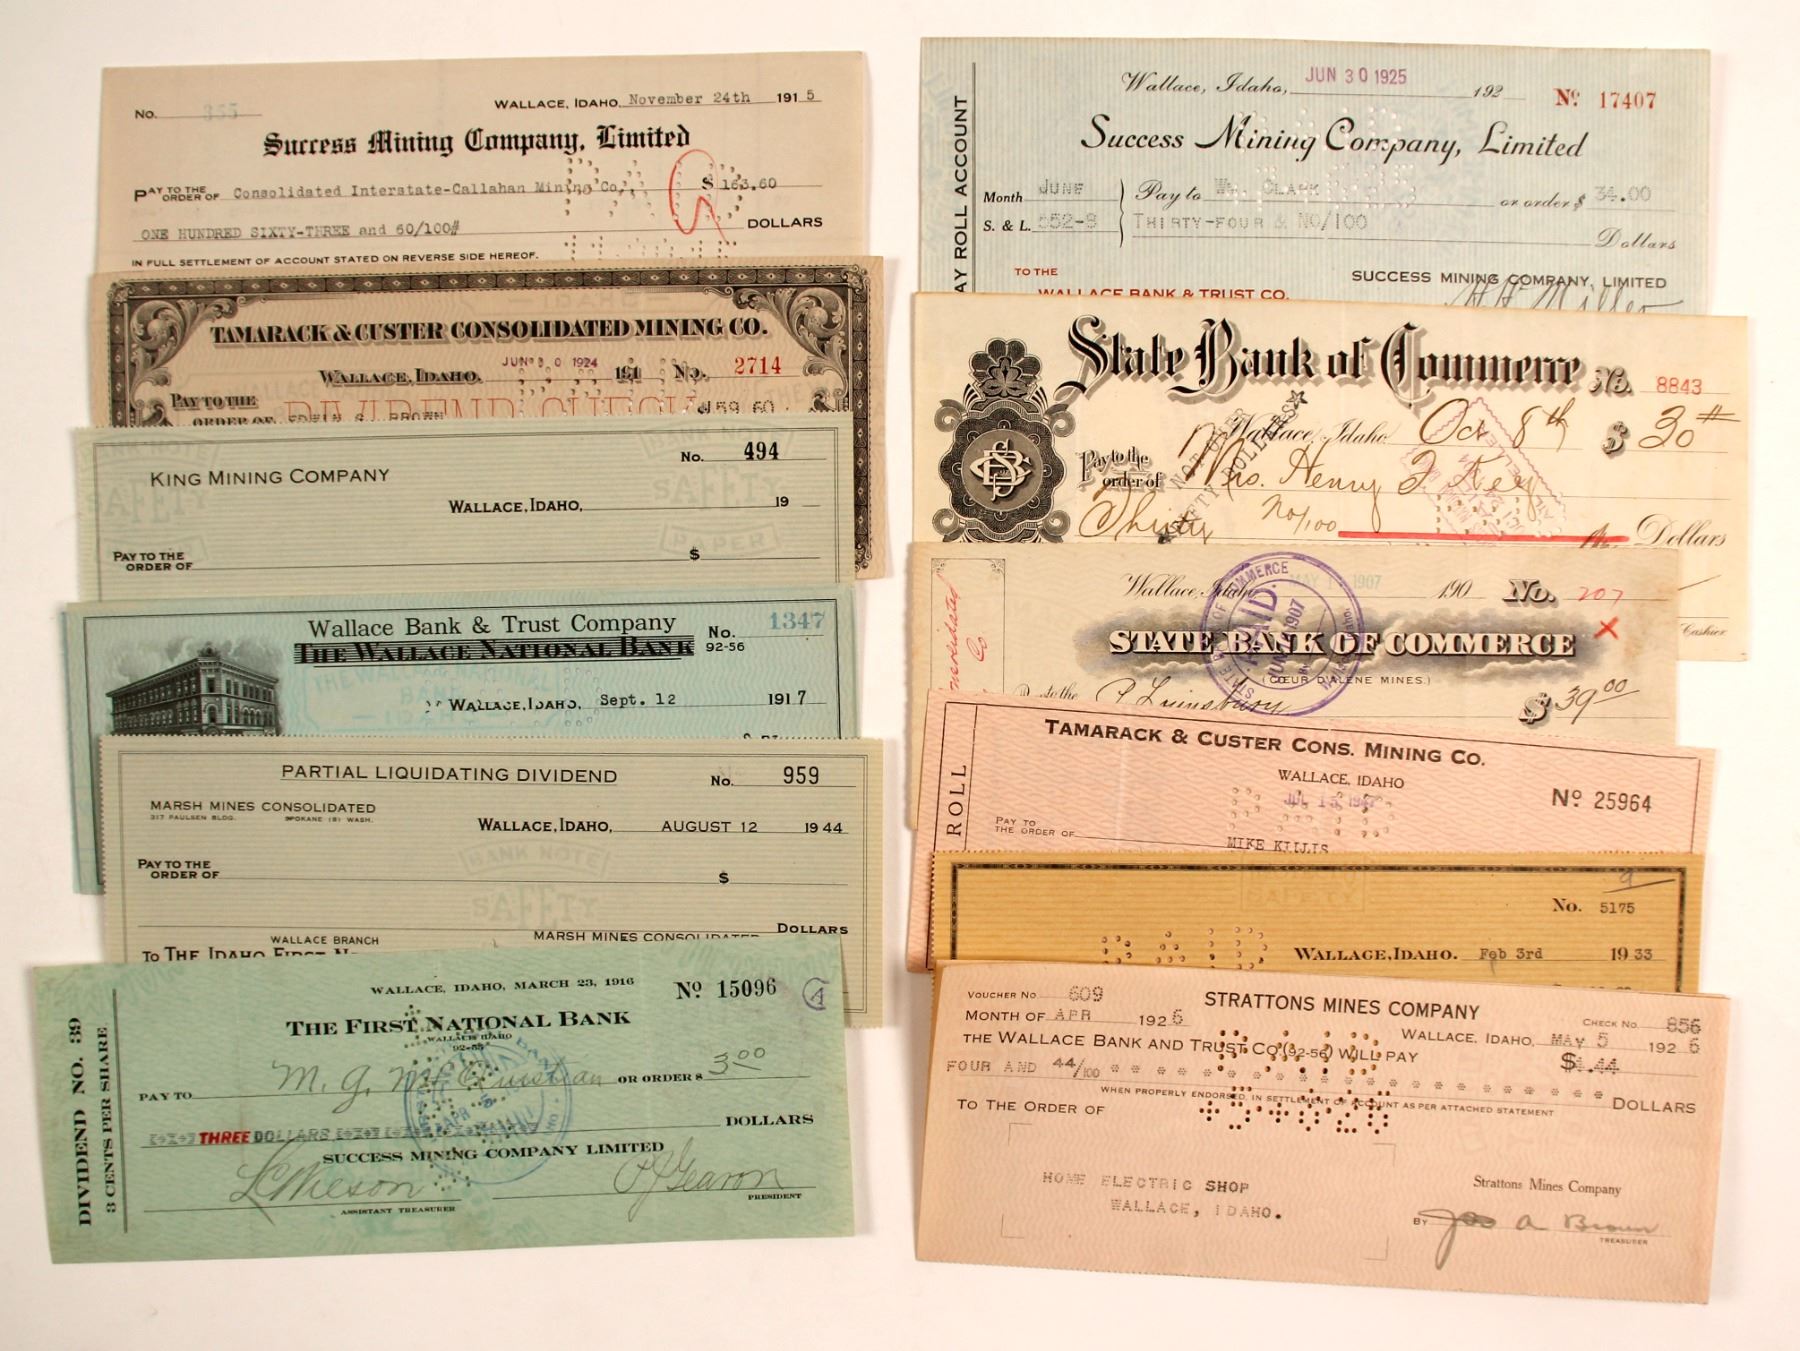 WALLACE, IDAHO, November 24th 1915
No. 355
Success Mining Company, Limited
PAY TO THE ORDER OF Consolidated Interstate-Callahan Mining Co., $ 163.60
ONE HUNDRED SIXTY-THREE and 60/100# DOLLARS
IN FULL SETTLEMENT OF ACCOUNT STATED ON REVERSE SIDE HEREOF.
TAMARACK & CUSTER CONSOLIDATED MINING CO.
WALLACE, IDAHO. JUN 30 1924 191 No. 2714
PAY TO THE ORDER OF EDWIN S. BROWN $159.60
DIVIDEND CHECK
No. 494
KING MINING COMPANY
WALLACE, IDAHO, 19
PAY TO THE ORDER OF $
BANK NOTE
SAFETY
PAPER
Wallace Bank & Trust Company
THE WALLACE NATIONAL BANK
No. 1347
92-56
WALLACE, IDAHO, Sept. 12 1917
PARTIAL LIQUIDATING DIVIDEND No. 959
MARSH MINES CONSOLIDATED
317 PAULSEN BLDG. SPOKANE (8) WASH.
WALLACE, IDAHO, AUGUST 12 1944
PAY TO THE ORDER OF $
BANK NOTE
SAFETY
DOLLARS
WALLACE BRANCH MARSH MINES CONSOLIDATED
TO THE IDAHO FIRST
WALLACE, IDAHO, MARCH 23, 1916 No 15096
THE FIRST NATIONAL BANK
WALLACE, IDAHO
92-55
PAY TO M. G. OR ORDER $ 3.00
THREE DOLLARS DOLLARS
SUCCESS MINING COMPANY LIMITED
ASSISTANT TREASURER
PRESIDENT
DIVIDEND NO. 39
3 CENTS PER SHARE
Wallace, Idaho, JUN 30 1925 192 No 17407
Success Mining Company, Limited
Month JUNE Pay to WM. CLARK or order $ 34.00
S. & L. 552-8 THIRTY-FOUR & NO/100 Dollars
TO THE SUCCESS MINING COMPANY, LIMITED
WALLACE BANK & TRUST CO. H H Miller
AY ROLL ACCOUNT
State Bank of Commerce No. 8843
Wallace, Idaho Oct 8th $ 30
Pay to the order of Mrs. Henry J. Key
NOT OVER FIFTY DOLLARS
Thirty no/100 Dollars
Cashier
Wallace, Idaho MAY 1907 190 No. 207
STATE BANK OF COMMERCE
(COEUR D'ALENE MINES.)
PAID
$ 39.00
TAMARACK & CUSTER CONS. MINING CO.
WALLACE, IDAHO
JUL 15 1947 No 25964
PAY TO THE ORDER OF MIKE KILLIS
ROLL
No. 5175
WALLACE, IDAHO. Feb 3rd 1933
VOUCHER NO 609 STRATTONS MINES COMPANY CHECK NO. 856
MONTH OF APR 1926 WALLACE, IDAHO, MAY 5 1926
THE WALLACE BANK AND TRUST CO. (92-56) WILL PAY $4.44
FOUR AND 44/100 DOLLARS
WHEN PROPERLY ENDORSED, IN SETTLEMENT OF ACCOUNT AS PER ATTACHED STATEMENT
TO THE ORDER OF
HOME ELECTRIC SHOP
WALLACE, IDAHO.
Strattons Mines Company
BY Jas A Brown
TREASURER